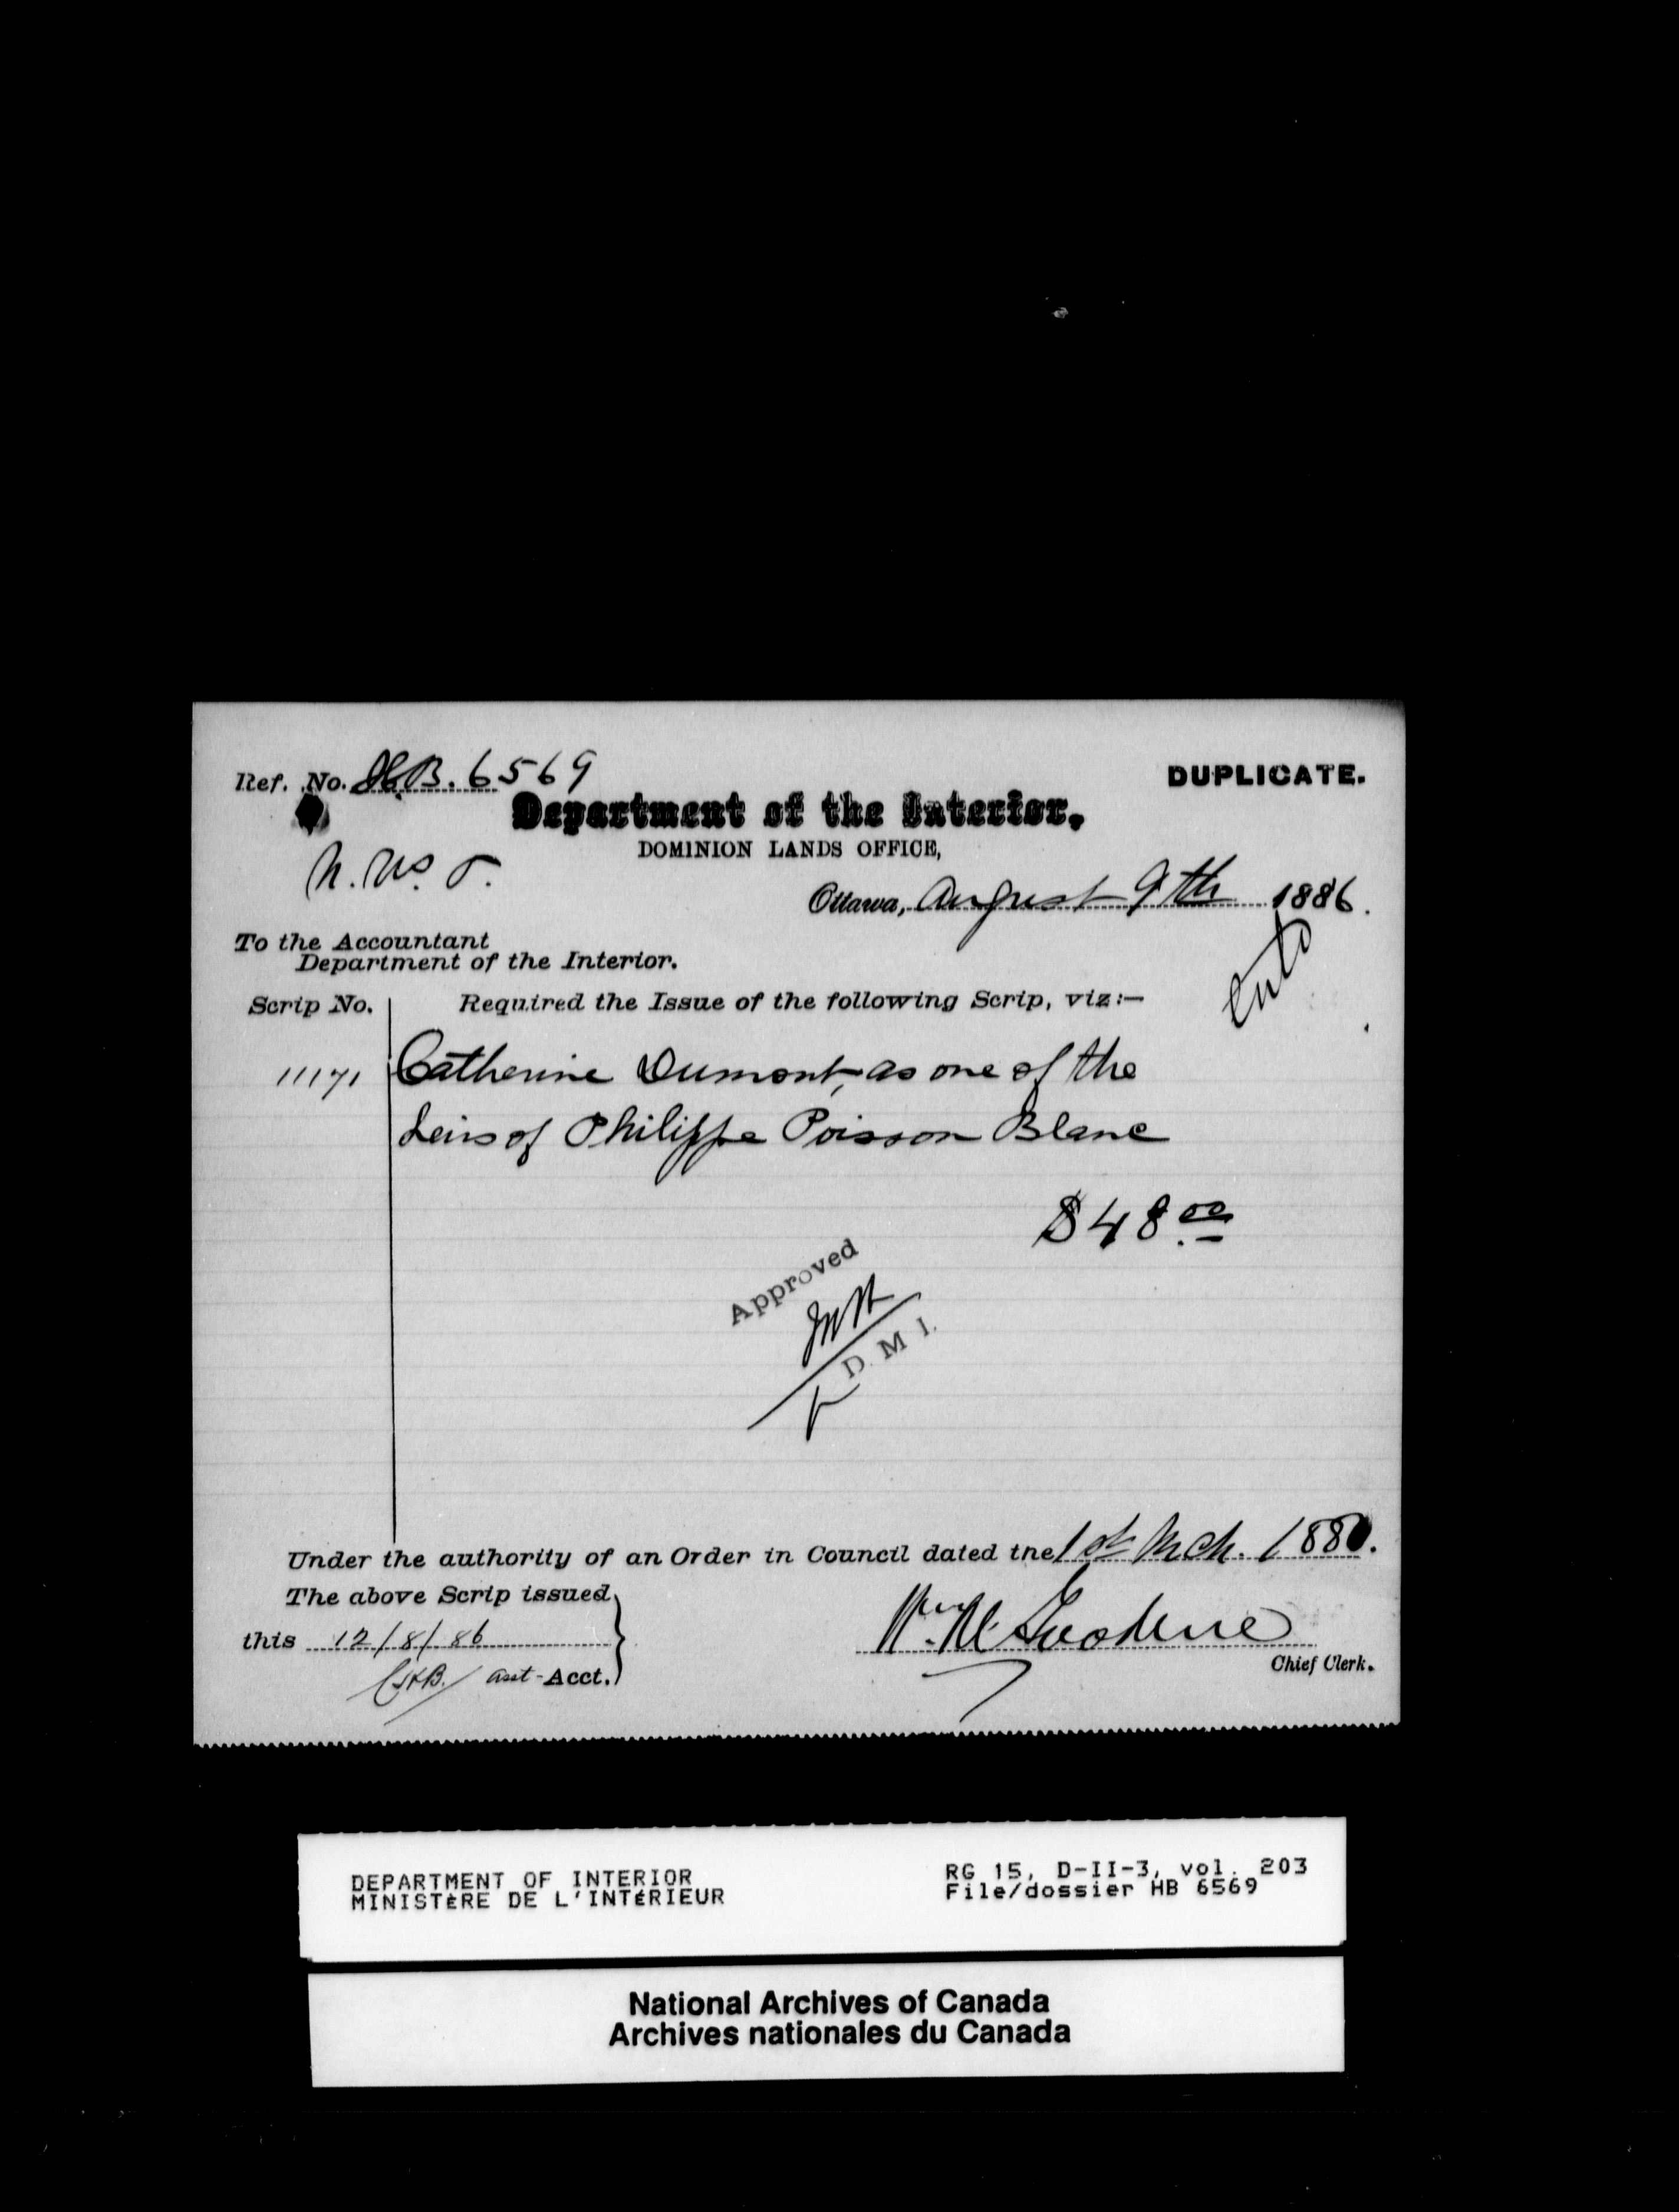 Ref. No. H.B. 6569
DUPLICATE.
Department of the Interior,
DOMINION LANDS OFFICE,
N.W.T.
Ottawa, August 9th 1886.
To the Accountant
Department of the Interior.
Scrip No. Required the Issue of the following Scrip, viz:—
11171 Catherine Dumont, as one of the
heirs of Philippe Poisson Blanc
$48.00
Approved
D. M. I.
Under the authority of an Order in Council dated the 1st Mch. 1886.
The above Scrip issued
this 12/8/86
asst-Acct.
Chief Clerk.
DEPARTMENT OF INTERIOR
MINISTÈRE DE L'INTÉRIEUR
RG 15, D-II-3, vol. 203
File/dossier HB 6569
National Archives of Canada
Archives nationales du Canada